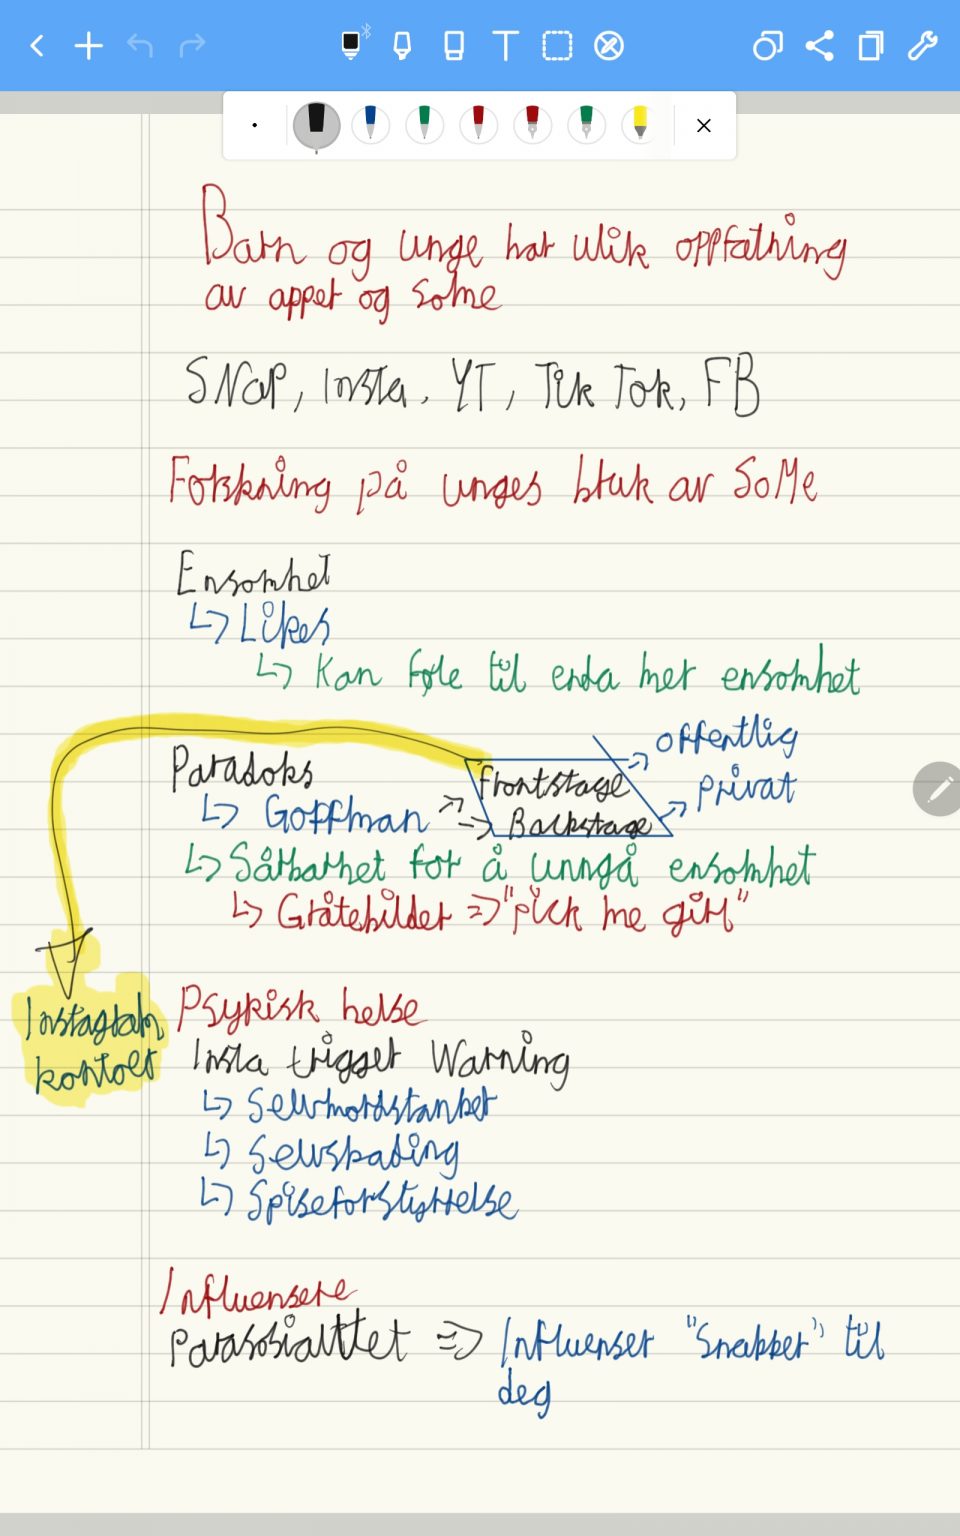 Barn og unge har ulik oppfatning
av apper og some
SNap, Insta, YT, Tik Tok, FB
Forskning på unges bruk av SoMe
Ensomhet
↳ Likes
↳ Kan føle til enda mer ensomhet
Paradoks
↳ Goffman → Frontstage → offentlig
→ Backstage → privat
↳ Sårbarhet for å unngå ensomhet
↳ Gråtebilder => "pick me girl"
Instagram
kontoer
Psykisk helse
Insta trigger Warning
↳ Selvmordstanker
↳ Selvskading
↳ Spiseforstyrrelse
Influensere
Parasosialitet => Influenser "Snakker" til
deg